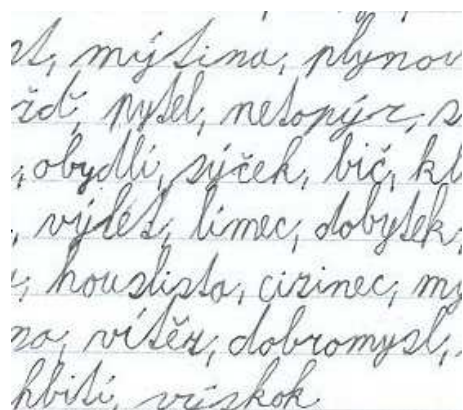 mýtina, plynov
pytel, netopýr, s
obydlí, sýček, bič, kl
výlet, límec, dobytek,
houslista, cizinec, my
vítěz, dobromysl,
hbití, výskok